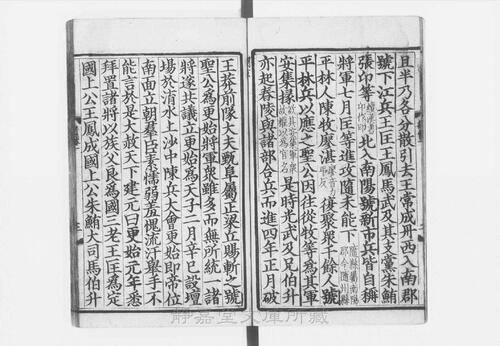 且半乃各分散引去王常成丹西入南郡
號下江兵王匡王鳳馬武及其支黨朱鮪
張卬等北入南陽號新市兵皆自稱
將軍七月匡等進攻隨未能下
平林人陳牧廖湛復聚衆千餘人號
平林兵以應之聖公因往從牧等爲其軍
安集掾是時光武及兄伯升
亦起舂陵與諸部合兵而進四年正月破
王莽前隊大夫甄阜屬正梁丘賜斬之號
聖公爲更始將軍衆雖多而無所統一諸
將遂共議立更始爲天子二月辛巳設壇
場於淯水上沙中陳兵大會更始即帝位
南面立朝羣臣素懦弱羞愧流汗舉手不
能言於是大赦天下建元曰更始元年悉
拜置諸將以族父良爲國三老王匡爲定
國上公王鳳成國上公朱鮪大司馬伯升
靜嘉堂文庫所藏